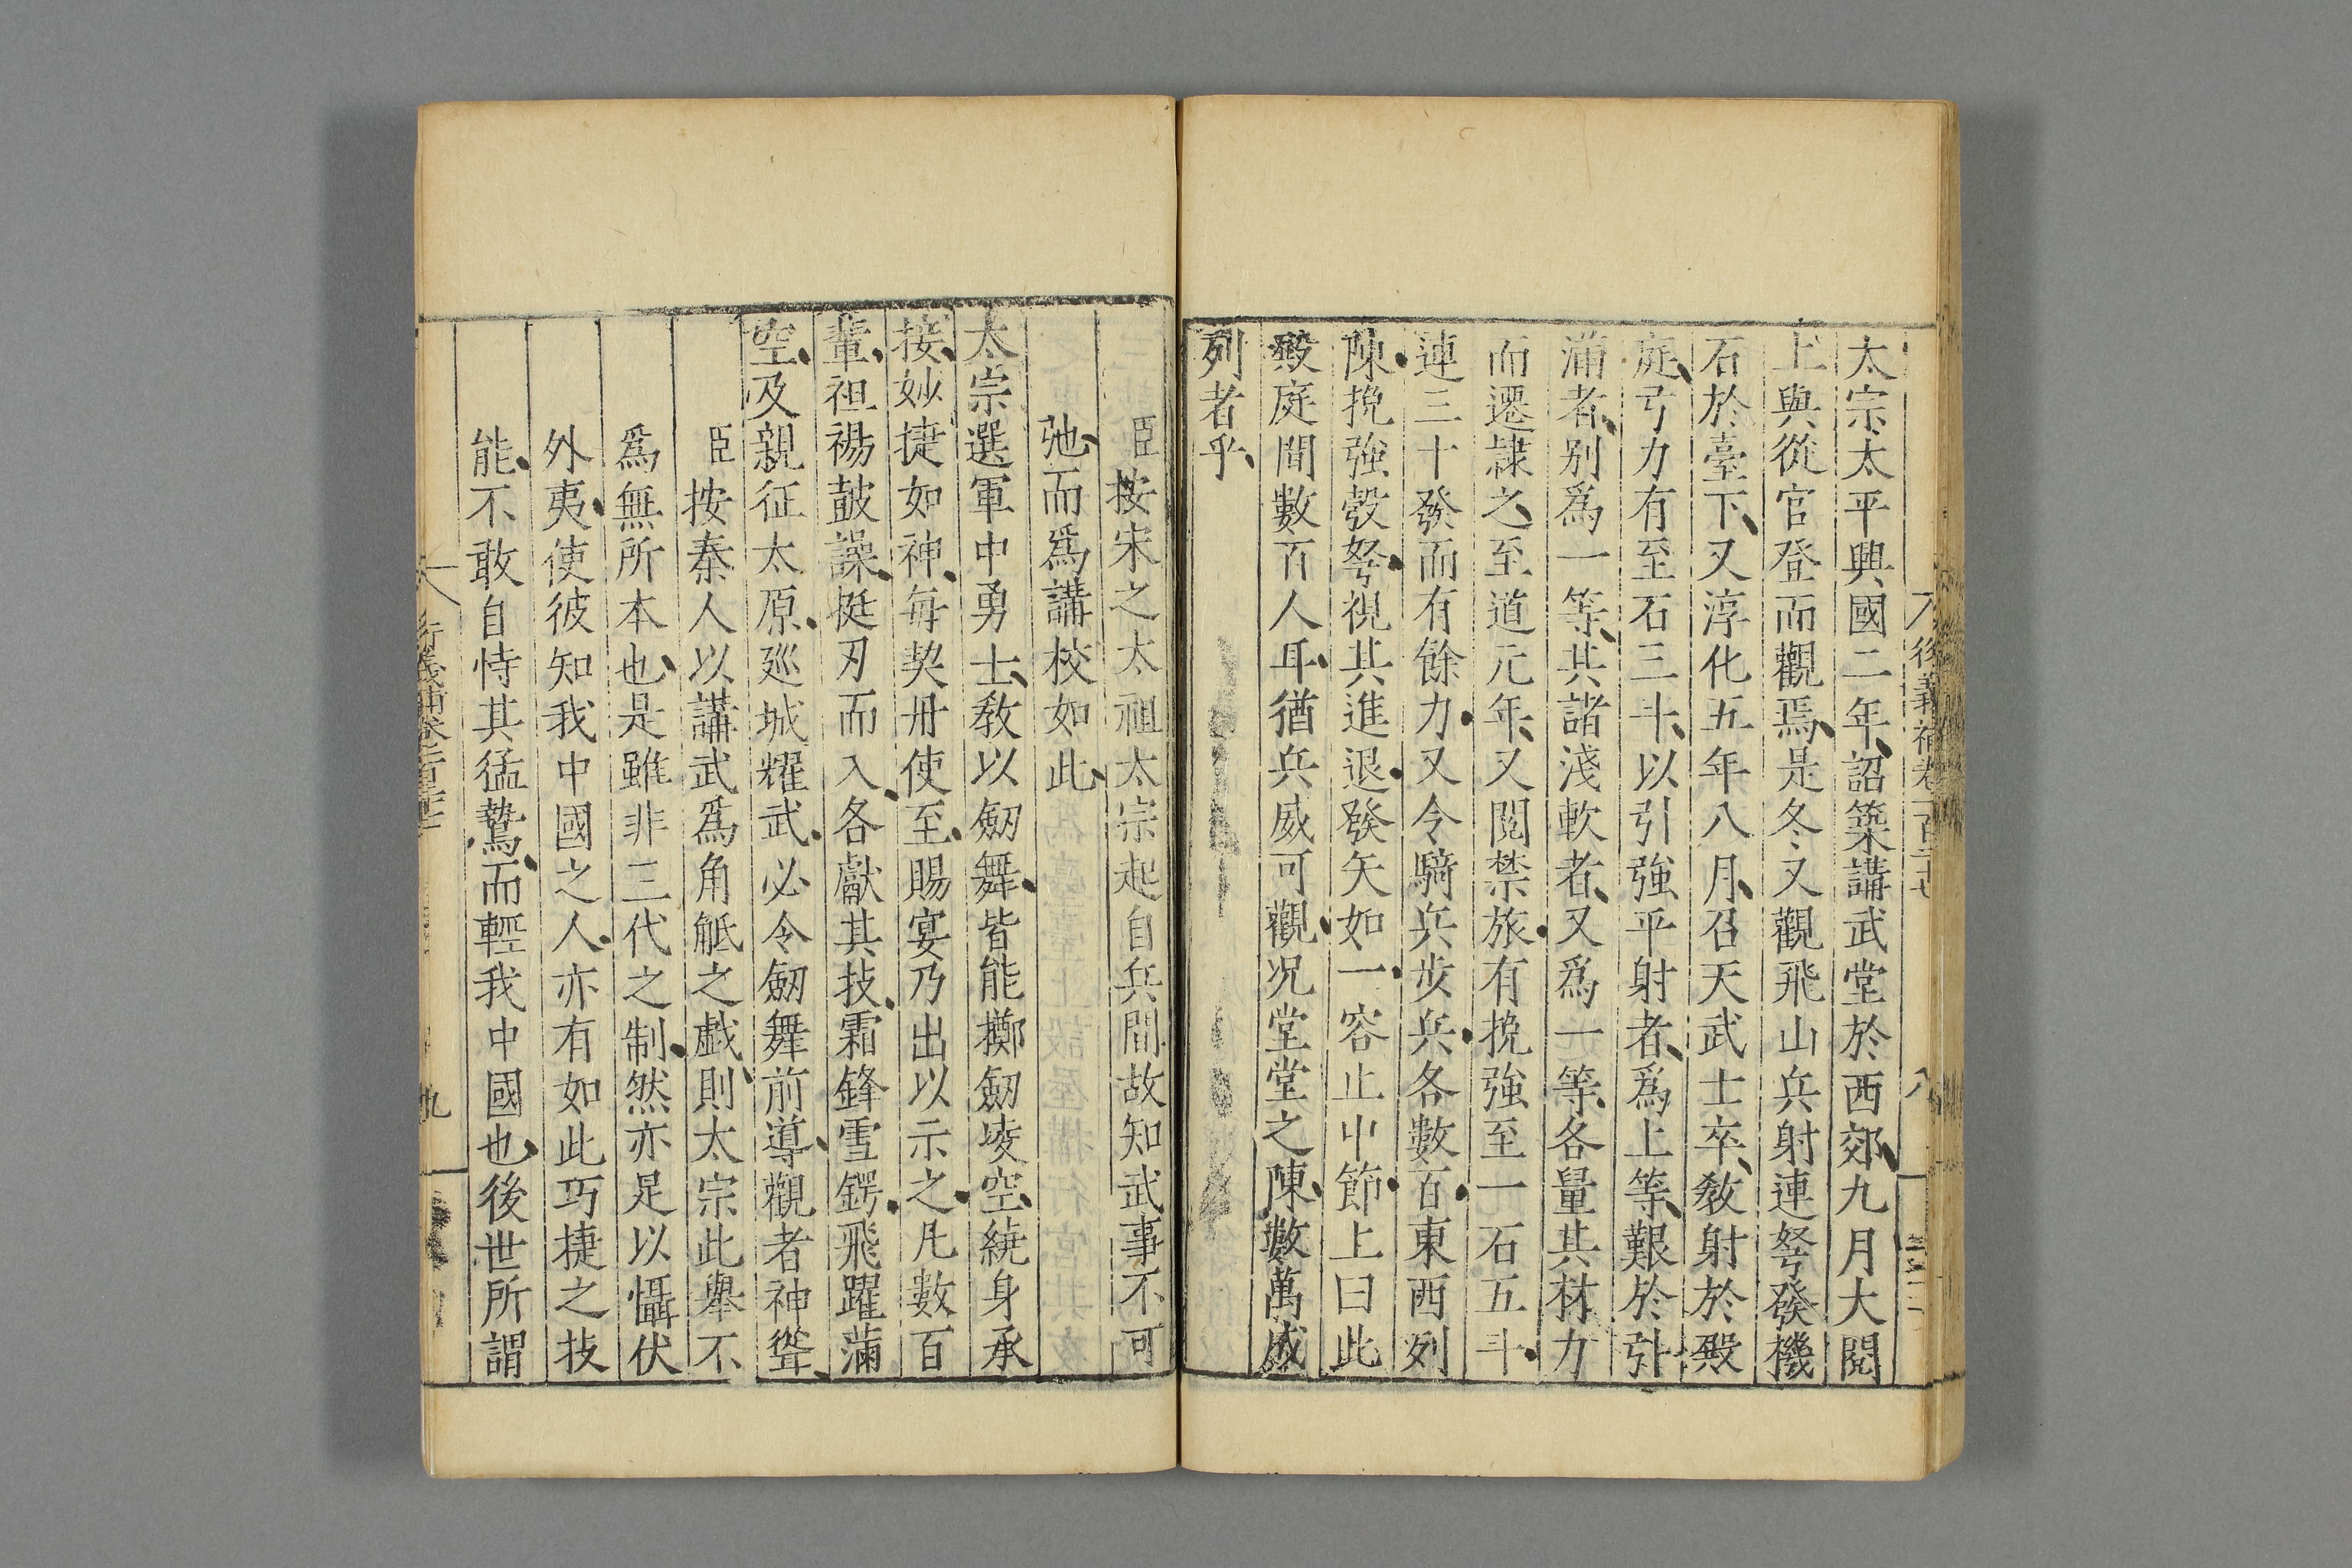 太宗太平興國二年詔築講武堂於西郊九月大閱
上與從官登而觀焉是冬又觀飛山兵射連弩發機
石於臺下又淳化五年八月召天武士卒敎射於殿
庭弓力有至石三斗以引強平射者爲上等艱於引
滿者别爲一等其諸淺軟者又爲一等各量其材力
而遷隷之至道元年又閱禁旅有挽強至一石五斗
連三十發而有餘力又令騎兵步兵各數百東西列
陳挽強彀弩視其進退發矢如一容止中節上曰此
殿庭間數百人耳猶兵威可觀况堂堂之陳數萬成
列者乎
臣按宋之太祖太宗起自兵間故知武事不可
弛而爲講校如此
太宗選軍中勇士敎以劒舞皆能擲劒凌空繞身承
接妙捷如神每契丹使至賜宴乃出以示之凡數百
輩袒裼鼓譟挺刃而入各獻其技霜鋒雪鍔飛躍滿
空及親征太原廵城耀武必令劒舞前導觀者神聳
臣按秦人以講武爲角觝之戲則太宗此舉不
爲無所本也是雖非三代之制然亦足以懾伏
外夷使彼知我中國之人亦有如此巧捷之技
能不敢自恃其猛鷙而輕我中國也後世所謂